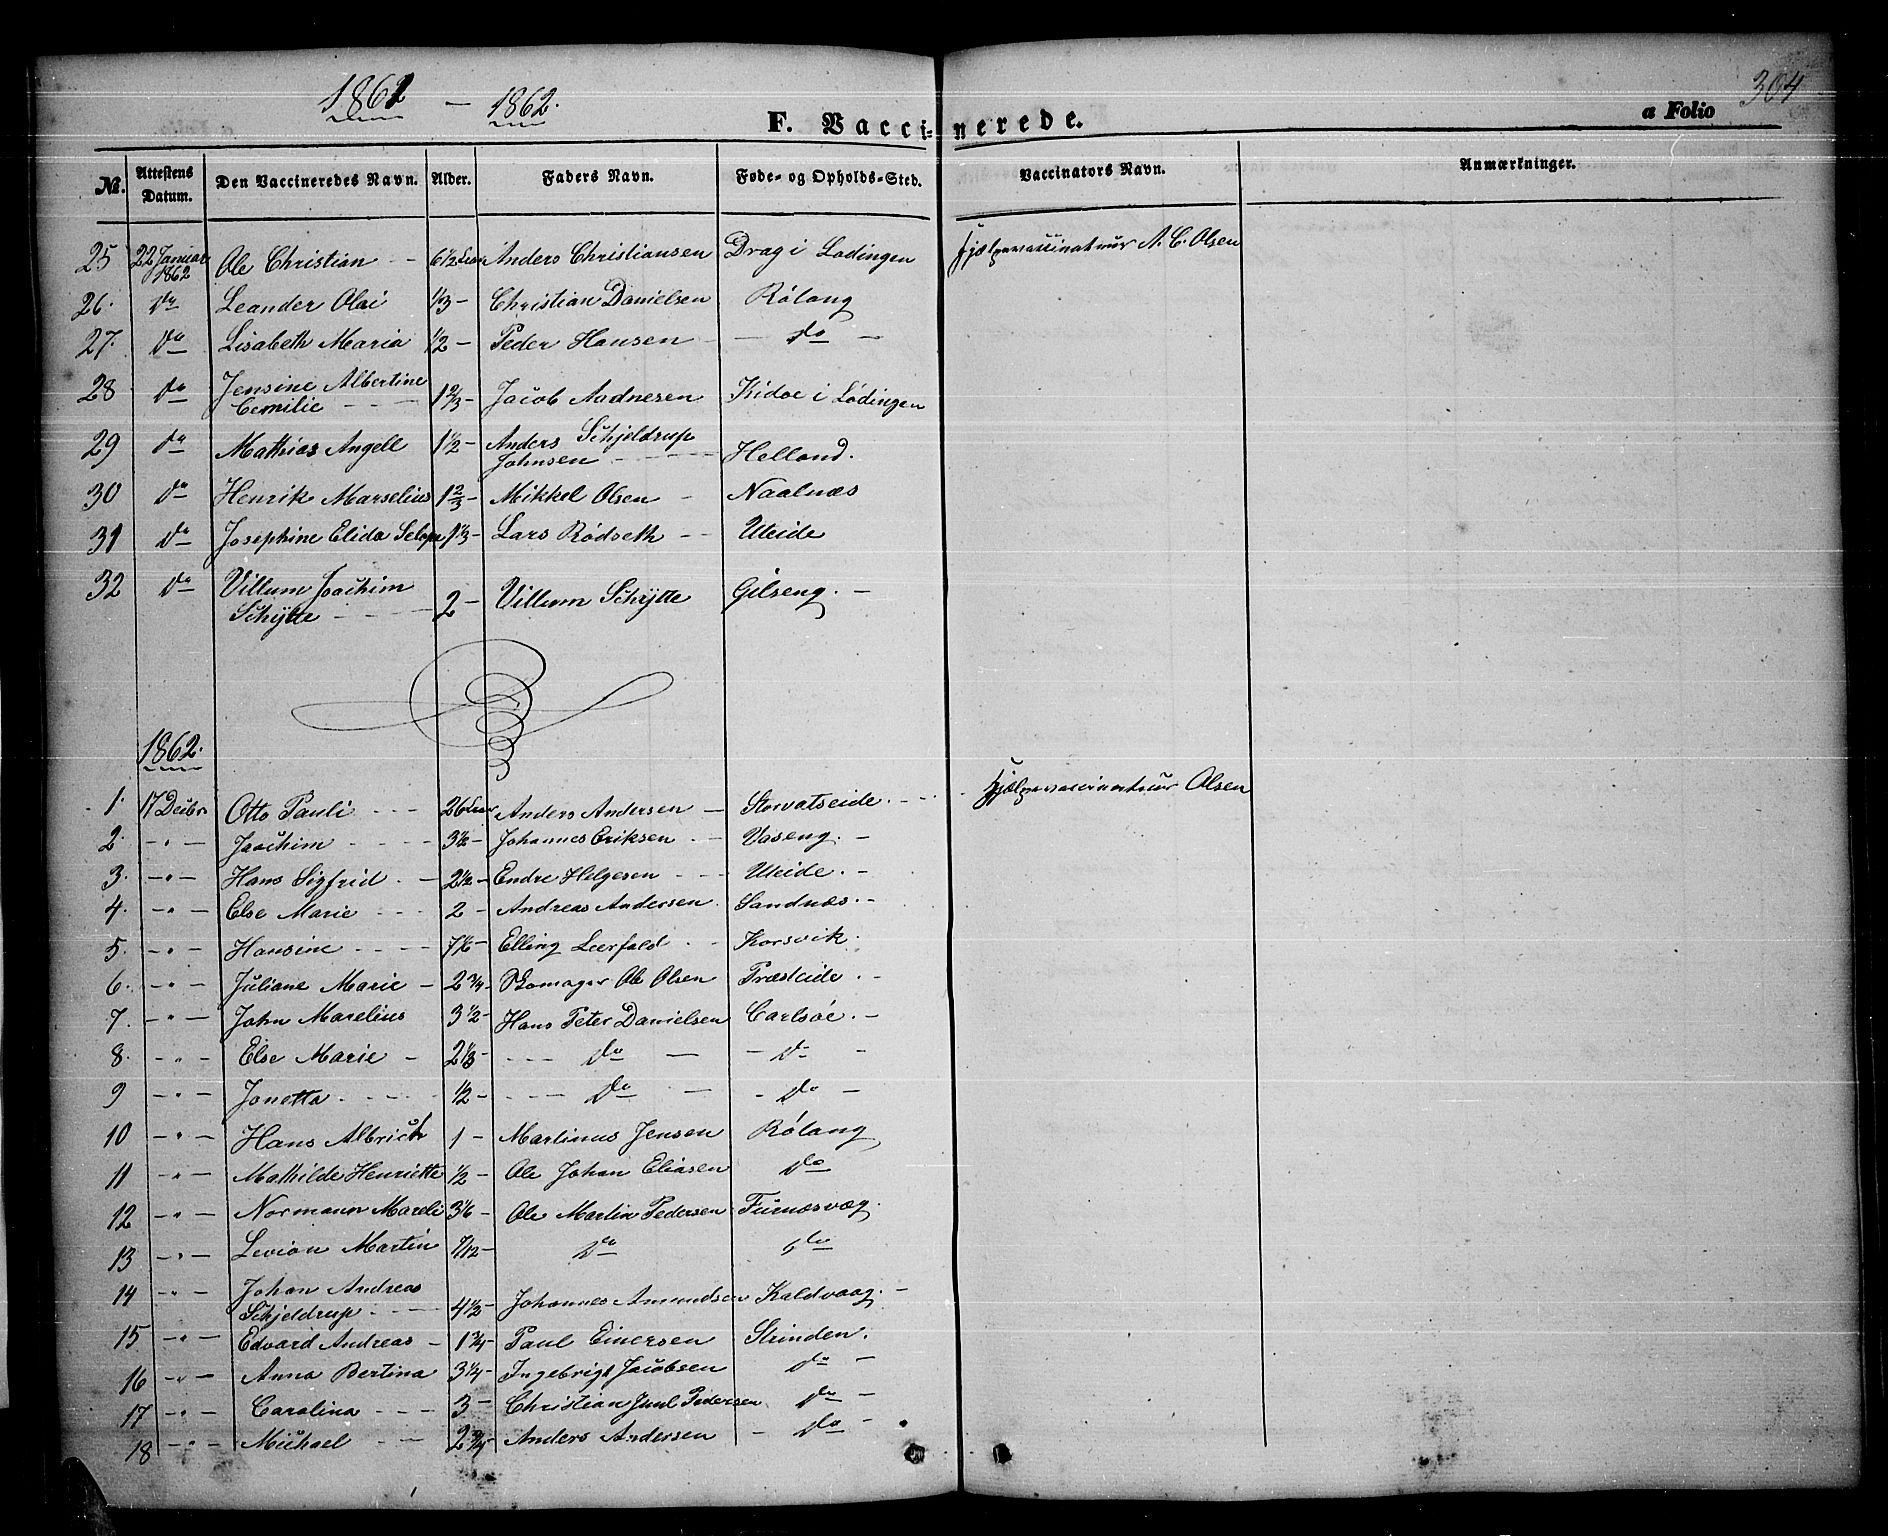 1862 - 1862.
F. Vaccinerede.
a Folio 304
Nr. Attestens Datum. Den Vaccineredes Navn. Alder. Faders Navn. Føde- og Opholds-Sted. Vaccinators Navn. Anmærkninger.
25 22 Januar 1862 Ole Christian - 6 1/2 Anders Christiansen Drag i Lødingen Hjælpevaccinateur A. C. Olsen
26. do Leander Olai 1/3 - Christian Danielsen Rølang
27. do Lisabeth Maria 1/2 - Peder Hansen - do -
28 do Jensine Albertine
Cemilie - - - 1 2/3 - Jacob Aadnesen Kidøe i Lødingen
29 do Mathias Angell 1 1/2 - Anders Schjeldrup
Johnsen - - - Helland.
30 do Henrik Marselius 1 2/3 - Mikkel Olsen - Naalnæs
31 do Josephine Elida 1 1/3 - Lars Rødseth - - Uleide
32 do Villum Joachim
Schytte - - - 2 - Villum Schytte Gilseng. -
1862.
1. 17 Decbr Otto Pauli - - 26 Anders Andersen - Stowatseide. - - Hjælpevaccinateur Olsen
2. - " - Joachim - - - 3 1/2 - Johannes Eriksen - - Vaseng. -
3. - " - Hans Sigfrid - - 2 1/2 - Endre Helgesen - - Uleide. -
4. - " - Else Marie - - 2 - Andreas Andersen. Sandnæs. -
5. - " - Hansine - - - 7 1/2 - Elling Leerfald - - Korsvik.
6. - " - Juliane Marie - 2 3/4 - Skomager Ole Olsen Præsteide. -
7. - " - John Marelius 3 1/2 - Hans Peter Danielsen Carlsøe. -
8. - " - Else Marie - 2 1/3 - - - do - - do -
9 - " - Jonetta - - - 1/2 - - - do - - do -
10 - " - Hans Albrich 1 - Martinus Jensen Rølang
11 - " - Mathilde Henriette 1/2 - Ole Johan Eliasen do
12 - " - Normann Mareli 3 1/6 - Ole Martin Pedersen Furnæsvæg.
13 - " - Levion Martin 7/12 - do do
14 - " - Johan Andreas
Schjeldrup - - - 4 1/2 - Johannes Amundsen Kaldvaag. -
15 - " - Edvard Andreas - 1 3/4 - Paul Einersen Strinden.
16 - " - Anna Bertina 3 1/4 - Ingebrigt Jacobsen do -
17 - " - Carolina - - - 3 - Christian Juul Pedersen do -
18 - " - Michael - - 2 3/4 - Anders Andersen - do -